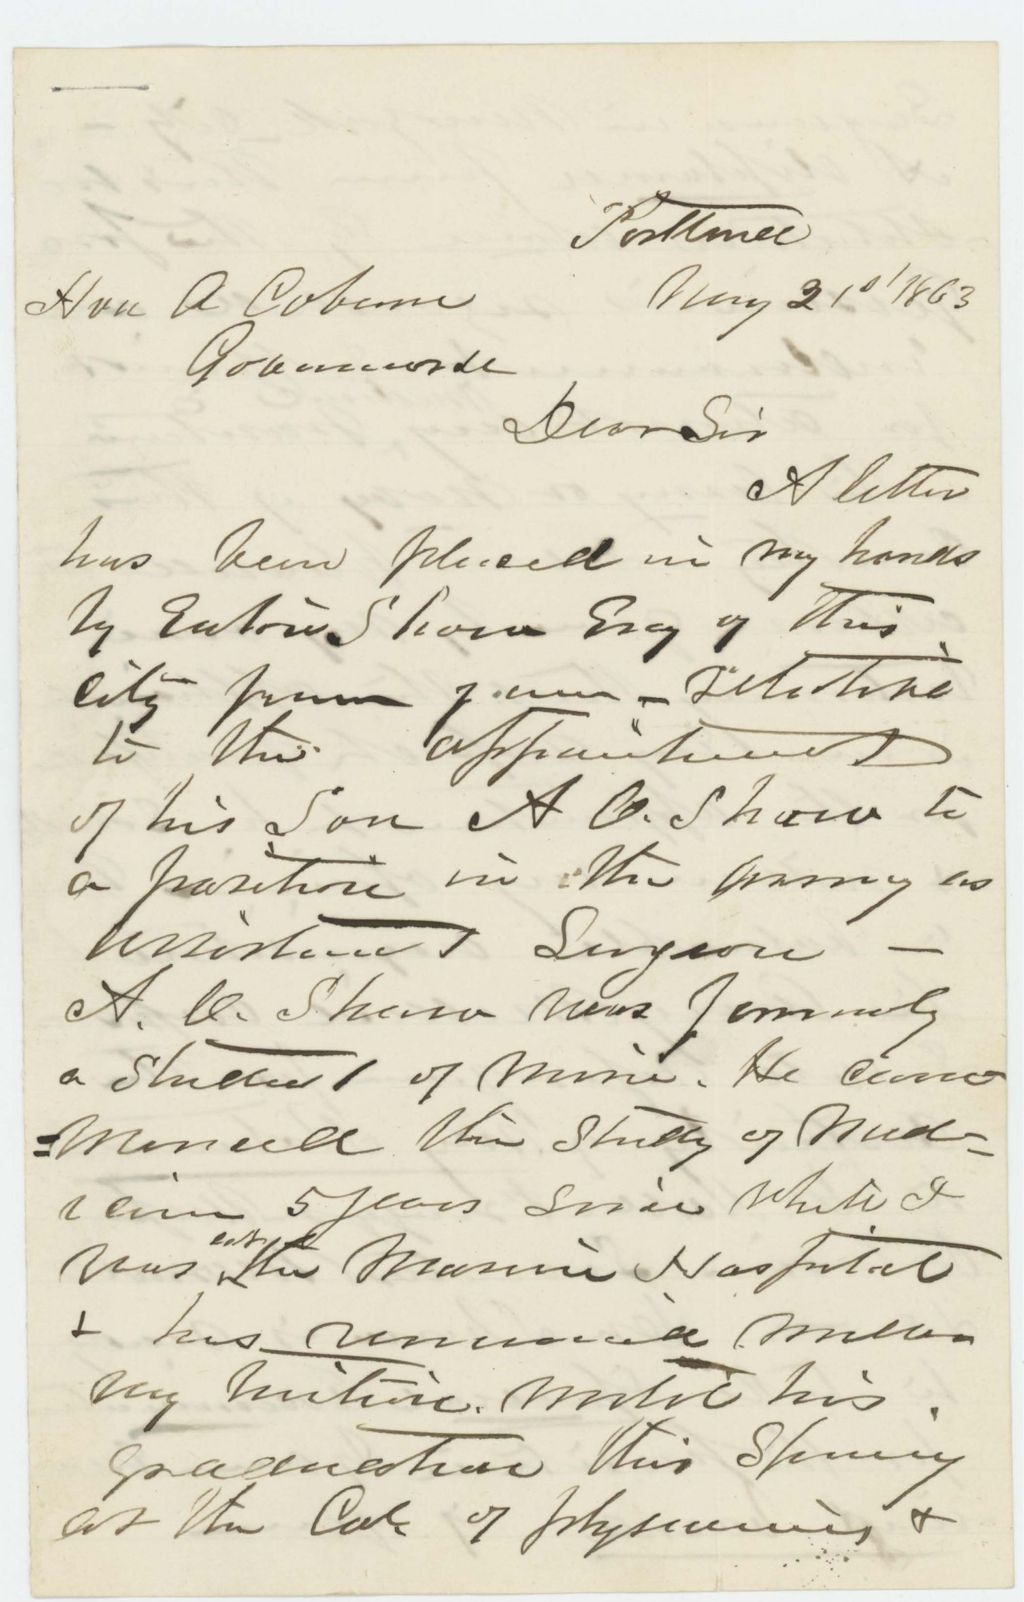 Portland
May 21st 1863
Hon A Coburn
Governor &c
Dear Sir
A letter
has been placed in my hands
by Eaton Shaw Esq of this
city from you - relative
to the appointment
of his Son A. O. Shaw to
a position in the army as
assistant Surgeon —
A. O. Shaw was formerly
a student of mine. He com
=menced the study of Med=
icine 5 years since while I
was at the Marine Hospital
+ has remained under
my tuition until his
graduation this Spring
at the Col. of physicians +